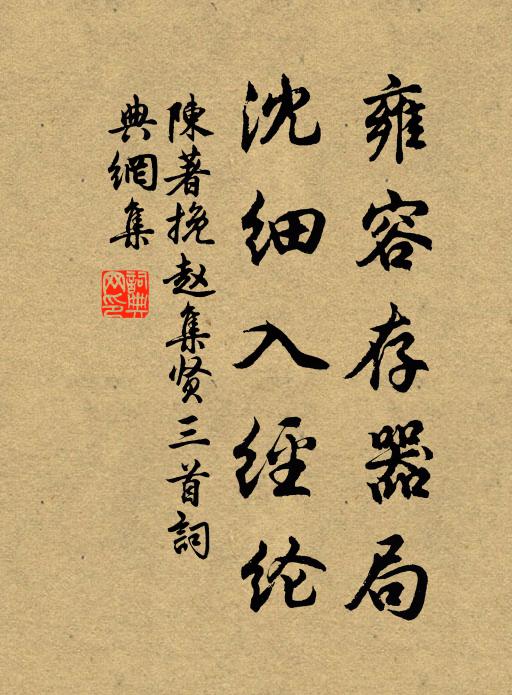 雍容存器局
沈细入經纶
陳著挽赵集贤三首詞
典網集
詞典网印